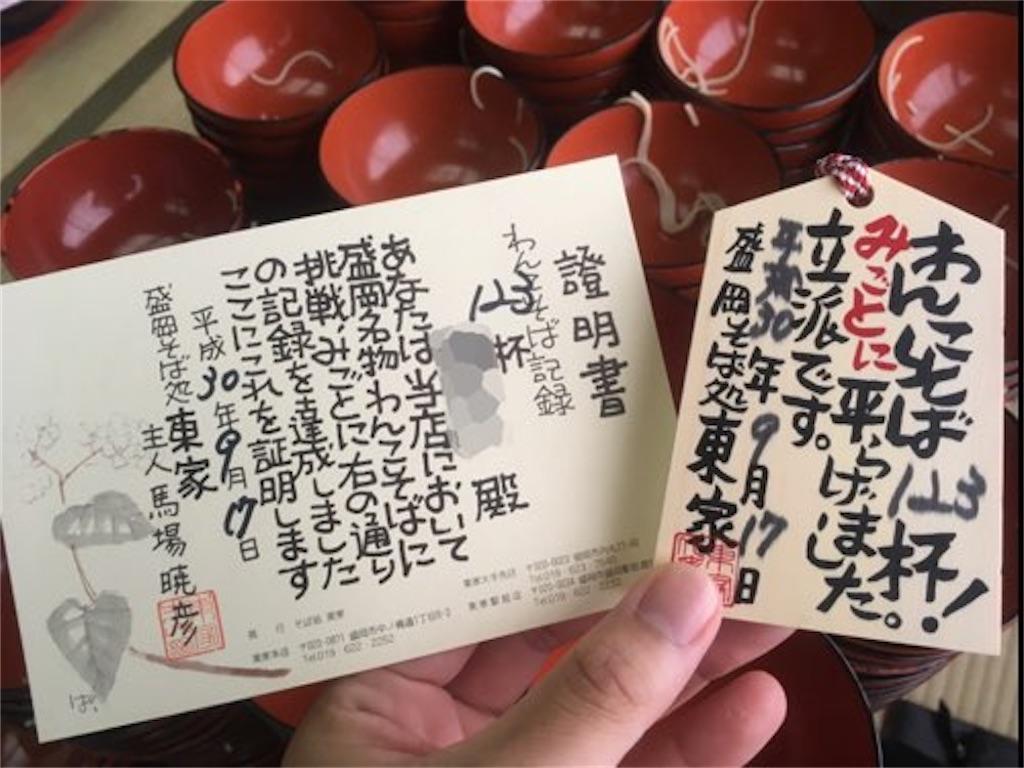 證明書
わんこそば記録
杯
殿
あなたは当店において
盛岡名物わんこそばに
挑戦、みごとに右の通り
の記録を達成しました
ここにこれを証明します
平成30年9月17日
盛岡そば処 東家
主人 馬場暁彦
発行 そば処 東家
東家本店
盛岡市中ノ橋通1丁目8-3
Tel.019-622-2252
東家大手先店
東家駅前店
わんこそば
杯!
みごとに平らげました。
立派です。
平成30年9月17日
盛岡そば処東家